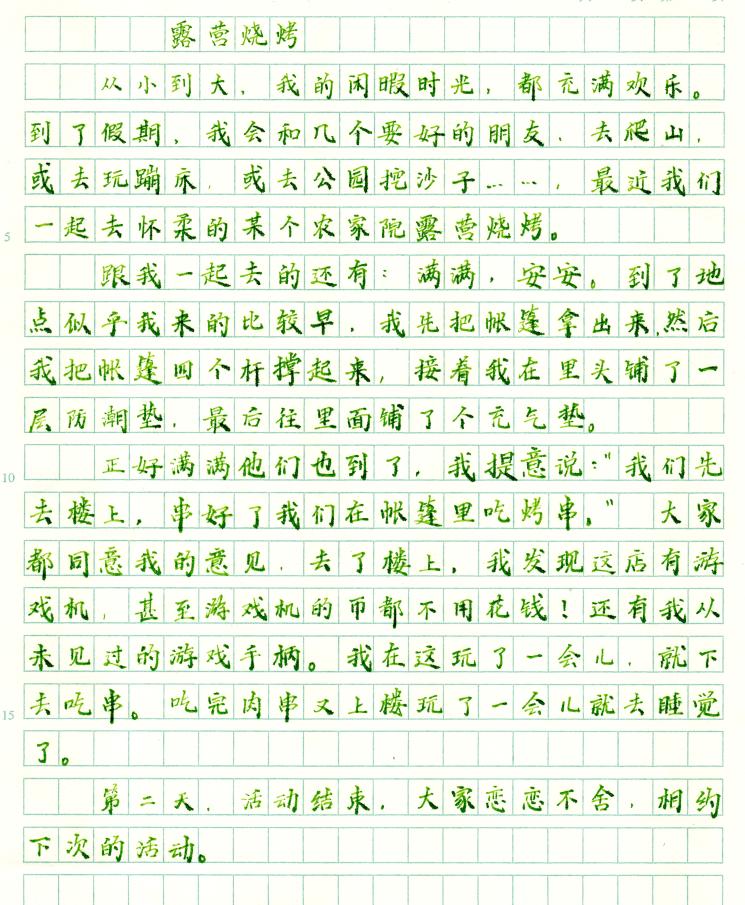 露营烧烤
从小到大，我的闲暇时光，都充满欢乐。
到了假期，我会和几个要好的朋友，去爬山，
或去玩蹦床，或去公园挖沙子……，最近我们
5 一起去怀柔的某个农家院露营烧烤。
跟我一起去的还有：满满，安安。到了地
点似乎我来的比较早，我先把帐篷拿出来，然后
我把帐篷四个杆撑起来，接着我在里头铺了一
层防潮垫，最后往里面铺了个充气垫。
10 正好满满他们也到了，我提意说：“我们先
去楼上，串好了我们在帐篷里吃烤串。”大家
都同意我的意见，去了楼上，我发现这店有游
戏机，甚至游戏机的币都不用花钱！还有我从
未见过的游戏手柄。我在这玩了一会儿，就下
15 去吃串。吃完肉串又上楼玩了一会儿就去睡觉
了。
第二天，活动结束，大家恋恋不舍，相约
下次的活动。